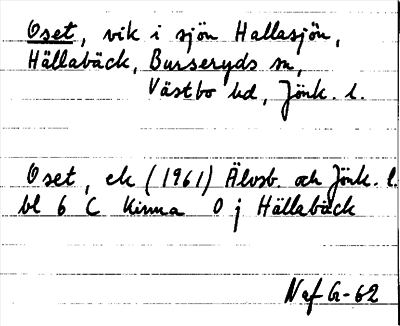 Oset, vik i sjön Hallasjön,
Hällabäck, Burseryds sn,
Västbo hd, Jönk. l.
Oset, ek (1961) Älvsb. och Jönk. l.
bl 6 C Kinna 0 j Hällabäck
Naf G-62